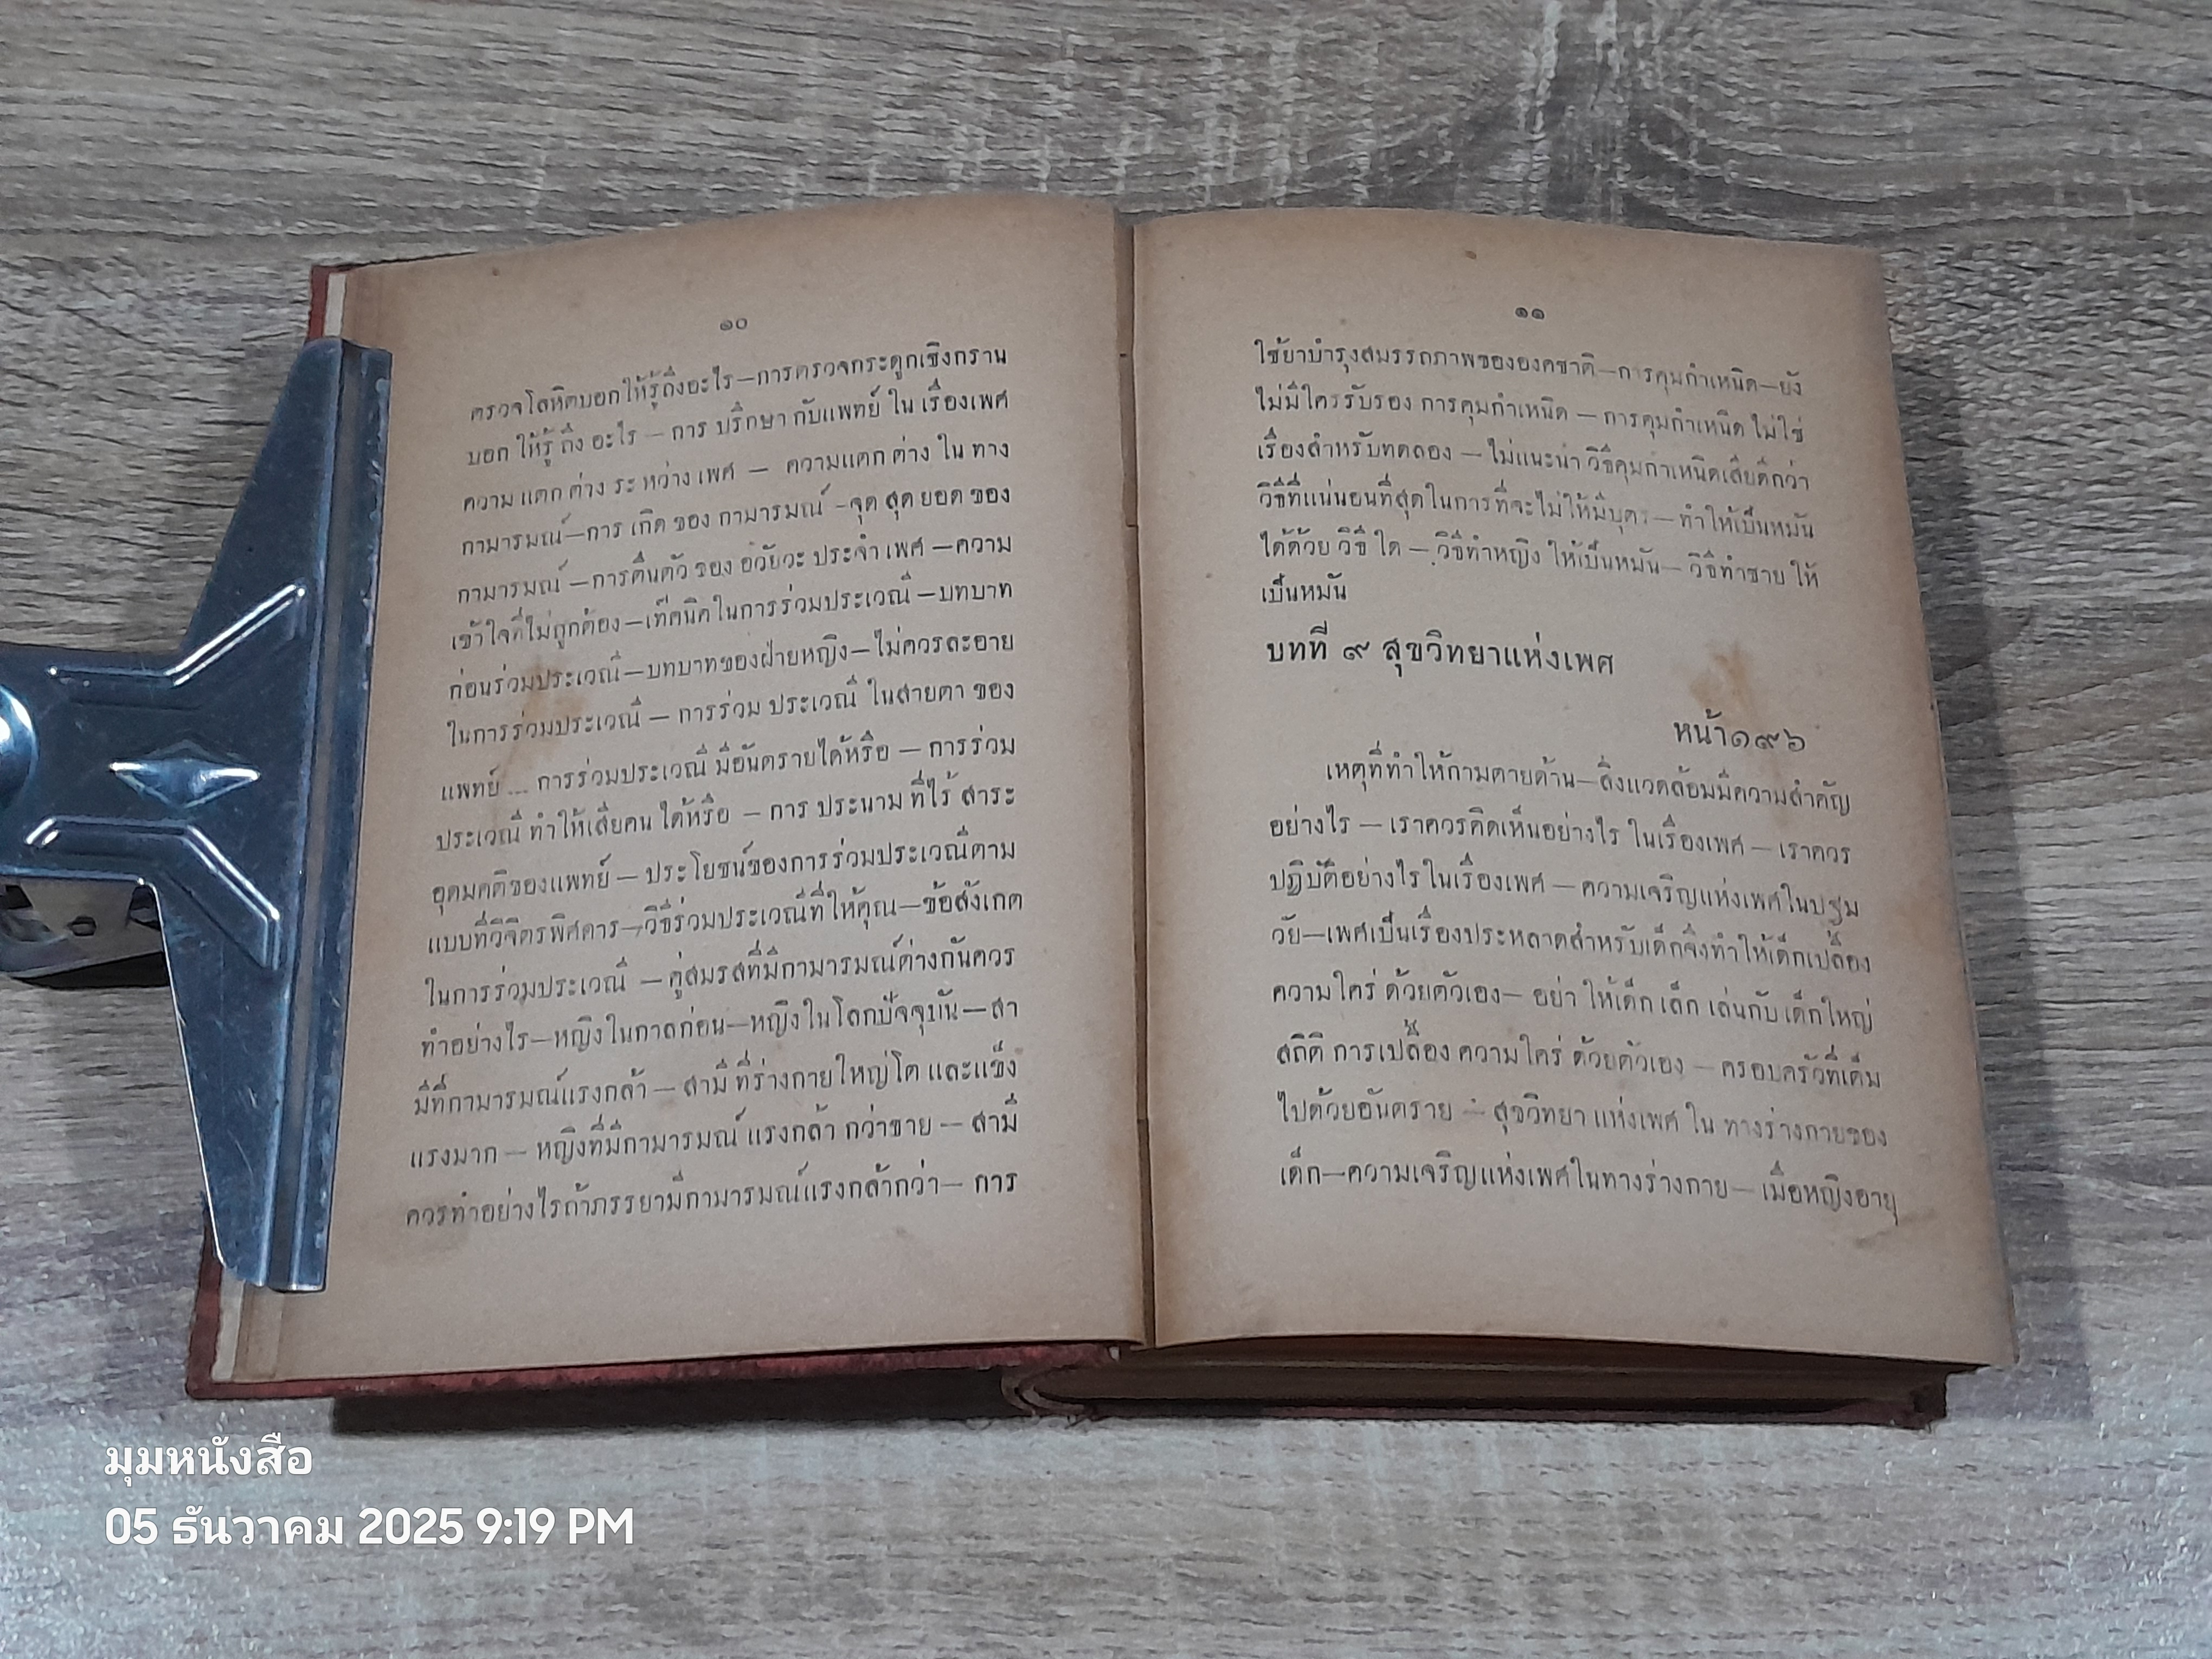 ๑๐
ตรวจโลหิตบอกให้รู้ถึงอะไร—การตรวจกระดูกเชิงกราน
บอก ให้รู้ ถึง อะไร — การ ปรึกษา กับแพทย์ ใน เรื่องเพศ
ความ แตก ต่าง ระ หว่าง เพศ — ความแตก ต่าง ใน ทาง
กามารมณ์—การ เกิด ของ กามารมณ์ -จุด สุด ยอด ของ
กามารมณ์ —การตื่นตัว ของ อวัยวะ ประจำ เพศ —ความ
เข้าใจที่ไม่ถูกต้อง—เท็คนิคในการร่วมประเวณี —บทบาท
ก่อนร่วมประเวณี—บทบาทของฝ่ายหญิง—ไม่ควรละอาย
ในการร่วมประเวณี — การร่วม ประเวณี ในสายตา ของ
แพทย์ ... การร่วมประเวณี มีอันตรายได้หรือ — การร่วม
ประเวณี ทำให้เสียคน ได้หรือ — การ ประนาม ที่ไร้ สาระ
อุดมคติของแพทย์ — ประโยชน์ของการร่วมประเวณีตาม
แบบที่วิจิตรพิศดาร—วิธีร่วมประเวณีที่ให้คุณ—ข้อสังเกต
ในการร่วมประเวณี — คู่สมรสที่มีกามารมณ์ต่างกันควร
ทำอย่างไร—หญิงในกาลก่อน—หญิงในโลกปัจจุบัน—สา
มีที่กามารมณ์แรงกล้า — สามี ที่ร่างกายใหญ่โต และแข็ง
แรงมาก — หญิงที่มีกามารมณ์ แรงกล้า กว่าชาย — สามี
ควรทำอย่างไรถ้าภรรยามีกามารมณ์แรงกล้ากว่า— การ
๑๑
ใช้ยาบำรุงสมรรถภาพขององคชาติ—การคุมกำเหนิด—ยัง
ไม่มีใครรับรอง การคุมกำเหนิด — การคุมกำเหนิด ไม่ใช่
เรื่องสำหรับทดลอง — ไม่แนะนำ วิธีคุมกำเหนิดเสียดีกว่า
วิธีที่แน่นอนที่สุดในการที่จะไม่ให้มีบุตร — ทำให้เป็นหมัน
ได้ด้วย วิธี ใด — วิธีทำหญิง ให้เป็นหมัน— วิธีทำชาย ให้
เป็นหมัน
บทที่ ๙ สุขวิทยาแห่งเพศ
หน้า๑๙๖
เหตุที่ทำให้กามตายด้าน—สิ่งแวดล้อมมีความสำคัญ
อย่างไร — เราควรคิดเห็นอย่างไร ในเรื่องเพศ — เราควร
ปฏิบัติอย่างไรในเรื่องเพศ — ความเจริญแห่งเพศในปฐม
วัย—เพศเป็นเรื่องประหลาดสำหรับเด็กจึงทำให้เด็กเปลื้อง
ความใคร่ ด้วยตัวเอง— อย่า ให้เด็ก เล็ก เล่นกับ เด็กใหญ่
สถิติ การเปลื้อง ความใคร่ ด้วยตัวเอง — ครอบครัวที่เต็ม
ไปด้วยอันตราย — สุขวิทยา แห่งเพศ ใน ทางร่างกายของ
เด็ก—ความเจริญแห่งเพศในทางร่างกาย— เมื่อหญิงอายุ
มุมหนังสือ
05 ธันวาคม 2025 9:19 PM